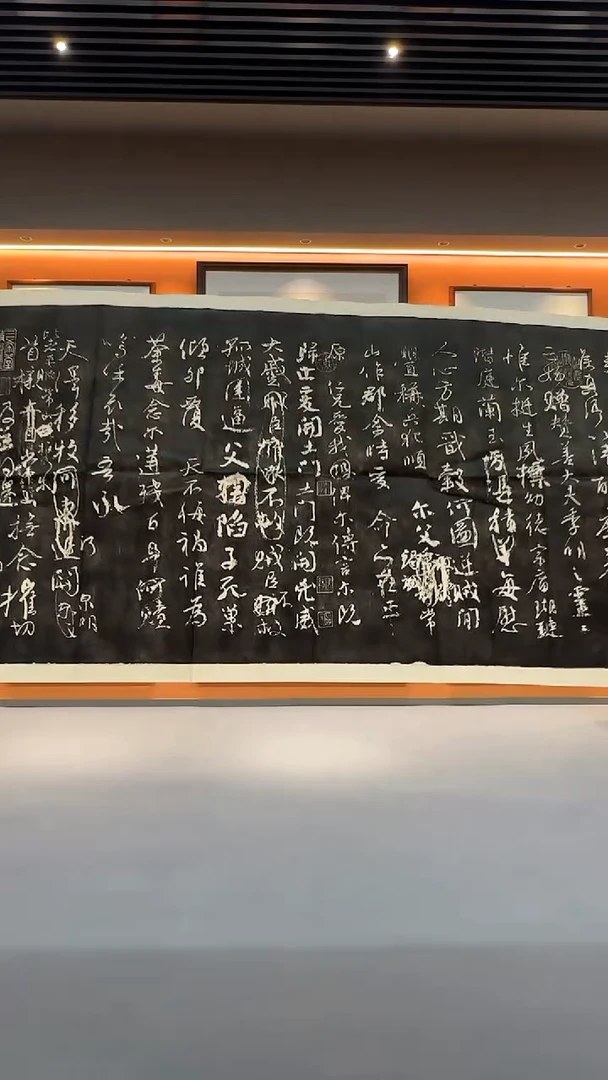 姪贈贊善大夫季明之靈曰
惟尔挺生夙標幼德宗廟瑚璉
階庭蘭玉每慰
人心方期戩穀何圖逆賊間
釁稱兵犯順尔父竭誠常
山作郡余時受命亦在平
原仁兄愛我俾尔傳言尔既
歸止爰開土門土門既開兇威
大蹙賊臣不救
孤城圍逼父陷子死巢
傾卵覆天不悔禍誰為
荼毒念尔遘殘百身何贖
嗚呼哀哉吾承
天澤移牧河關泉明
比者再陷常山攜尔
首櫬及茲同還撫念摧切